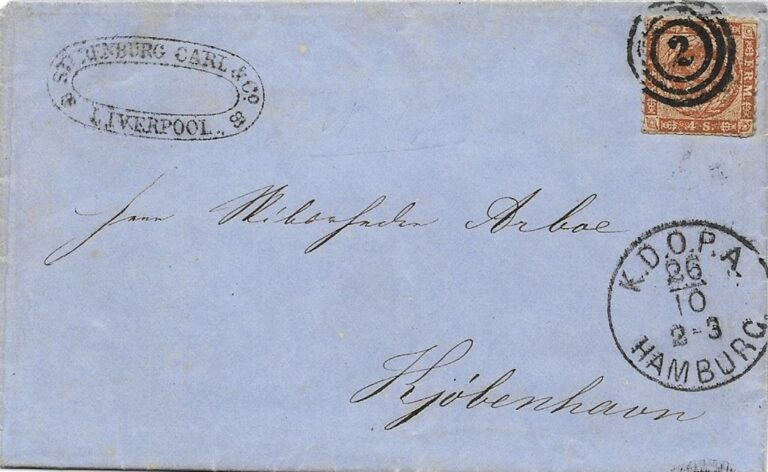 CARL & CO.
LIVERPOOL.
2
FRM
4 S.
Herr Skibsrheder Arboe
K.D.O.P.A.
26
10
2-3
HAMBURG
Kjöbenhavn